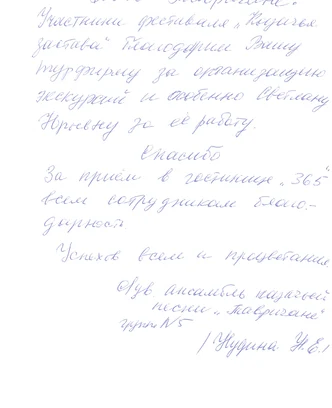 Участники фестиваля „Казачья
застава" благодарим Вашу
турфирму за организацию
экскурсий и особенно Светлану
Юрьевну за её работу.
Спасибо
За приём в гостинице „365"
всем сотрудникам благо-
дарность
Успехов всем и процветания.
Ансамбль казачьей
песни „Тавричане"
группа №5
/ Жудина Ж.Е. /